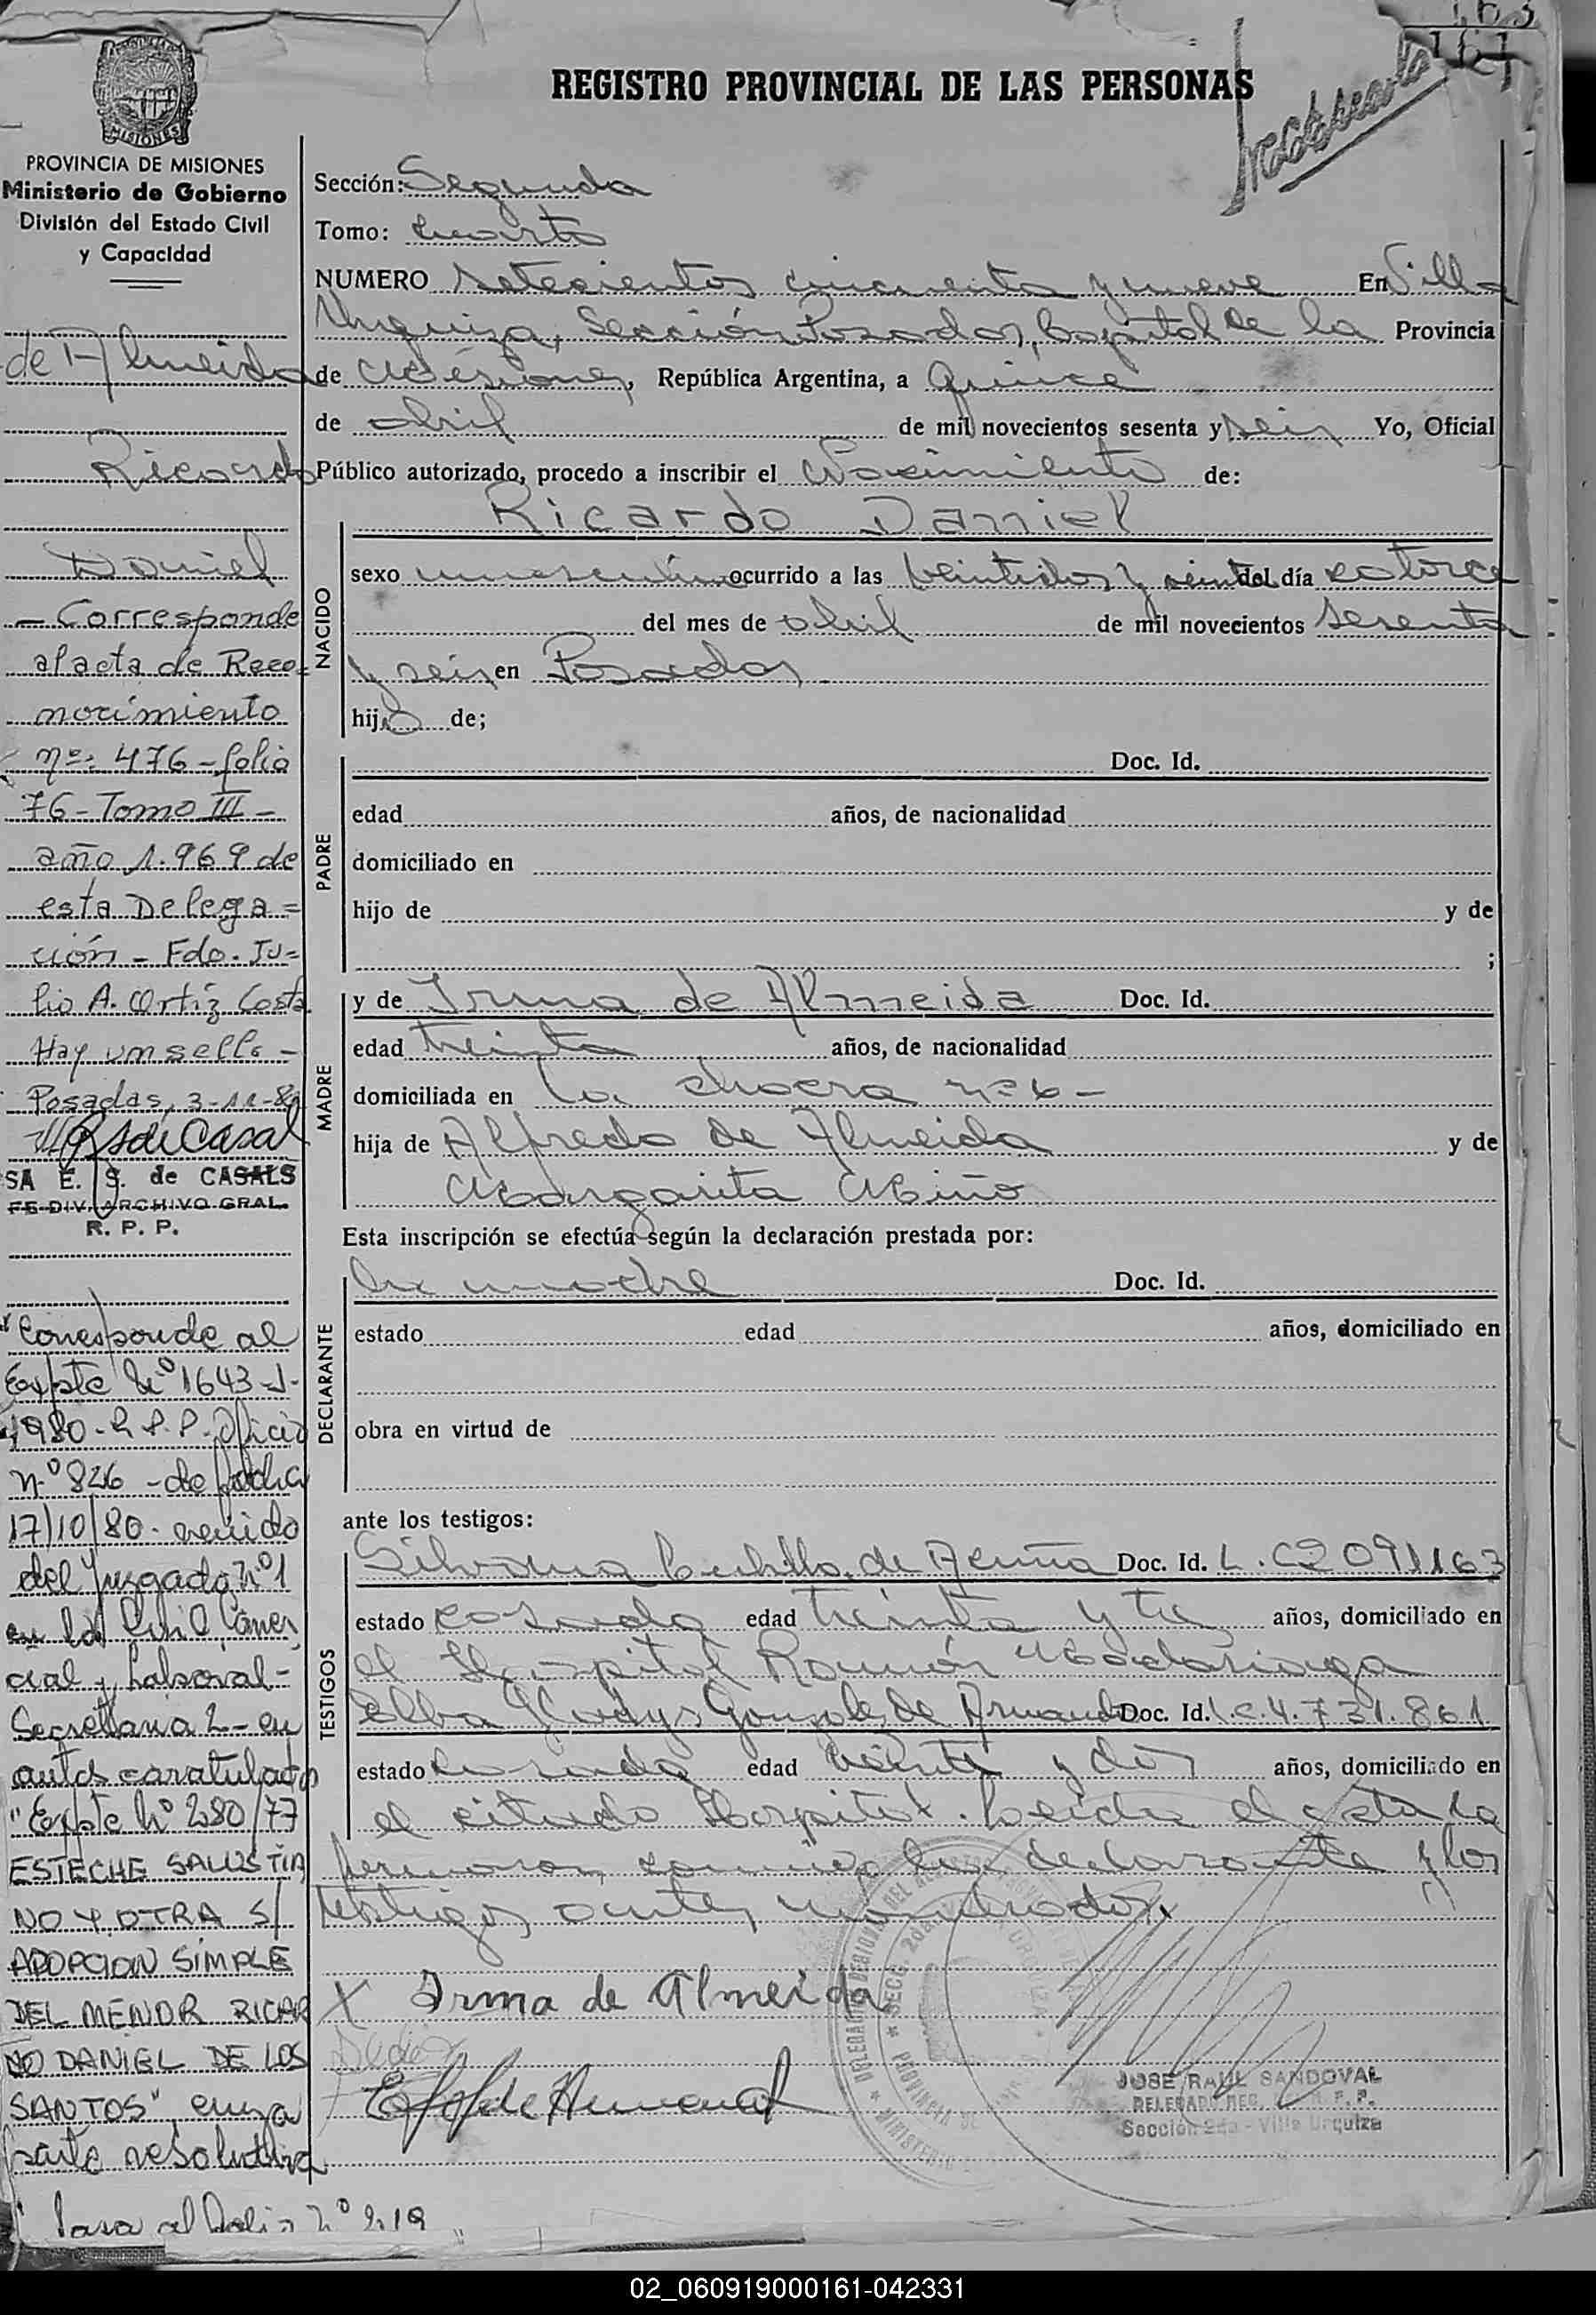 163
161
REGISTRO PROVINCIAL DE LAS PERSONAS
MISIONES
PROVINCIA DE MISIONES
Ministerio de Gobierno
División del Estado Civil
y Capacidad
Sección: Segunda
Tomo: Cuarto
NUMERO Setecientos cincuenta y nueve En Villa
Urquiza, Sección Posadas, Capital de la Provincia
de Misiones, República Argentina, a Quince
de abril de mil novecientos sesenta y seis Yo, Oficial
Público autorizado, procedo a inscribir el Nacimiento de:
NACIDO
Ricardo Daniel
sexo masculino ocurrido a las veintidos y veinte del día catorce
del mes de abril de mil novecientos sesenta
y seis en Posadas
hijo de;
PADRE
Doc. Id.
edad años, de nacionalidad
domiciliado en
hijo de y de
;
MADRE
y de Irma de Almeida Doc. Id.
edad treinta años, de nacionalidad
domiciliada en la chacra nº 6-
hija de Alfredo de Almeida y de
Margarita Miño
Esta inscripción se efectúa según la declaración prestada por:
DECLARANTE
la madre Doc. Id.
estado edad años, domiciliado en
obra en virtud de
ante los testigos:
TESTIGOS
Silvana de Acuña Doc. Id. L.C 2091163
estado casada edad treinta y tre años, domiciliado en
el Hospital Ramón Madariaga
Elba Gladys Gonzale de Armando Doc. Id. L.C.4.731.861
estado casada edad veinte y dos años, domiciliado en
el citado Hospital. Leida el acta la
firmaron, conmigo la declarante y los
testigos antes nombrados.
X Irma de Almeida
JOSE RAUL SANDOVAL
DELEGADO REG. R. P. P.
Sección 2da - Villa Urquiza
de Almeida
Ricardo
Daniel
- Corresponde
al acta de Reco=
nocimiento
nº: 476 - folio
76 - Tomo III -
año 1.969 de
esta Delega=
ción - Fdo. Ju=
lio A. Ortíz Costa
Hay un sello -
Posadas, 3-11-80
SA E. S. de CASALS
FE DIV. ARCHIVO GRAL.
R. P. P.
"Corresponde al
Expte Nº 1643-J-
1980 - R.P.P. Oficio
nº 826 - de fecha
17/10/80. venido
del Juzgado nº1
en lo Civil Comer
cial y Laboral -
Secretaria 2 - en
autos caratulado
"Expte Nº 280/77
ESTECHE SALUSTIA
NO Y OTRA S/
ADOPCION SIMPLE
DEL MENOR RICAR
DO DANIEL DE LOS
SANTOS", cuya
parte resolutiva
Pasa al folio Nº 219
02_060919000161-042331